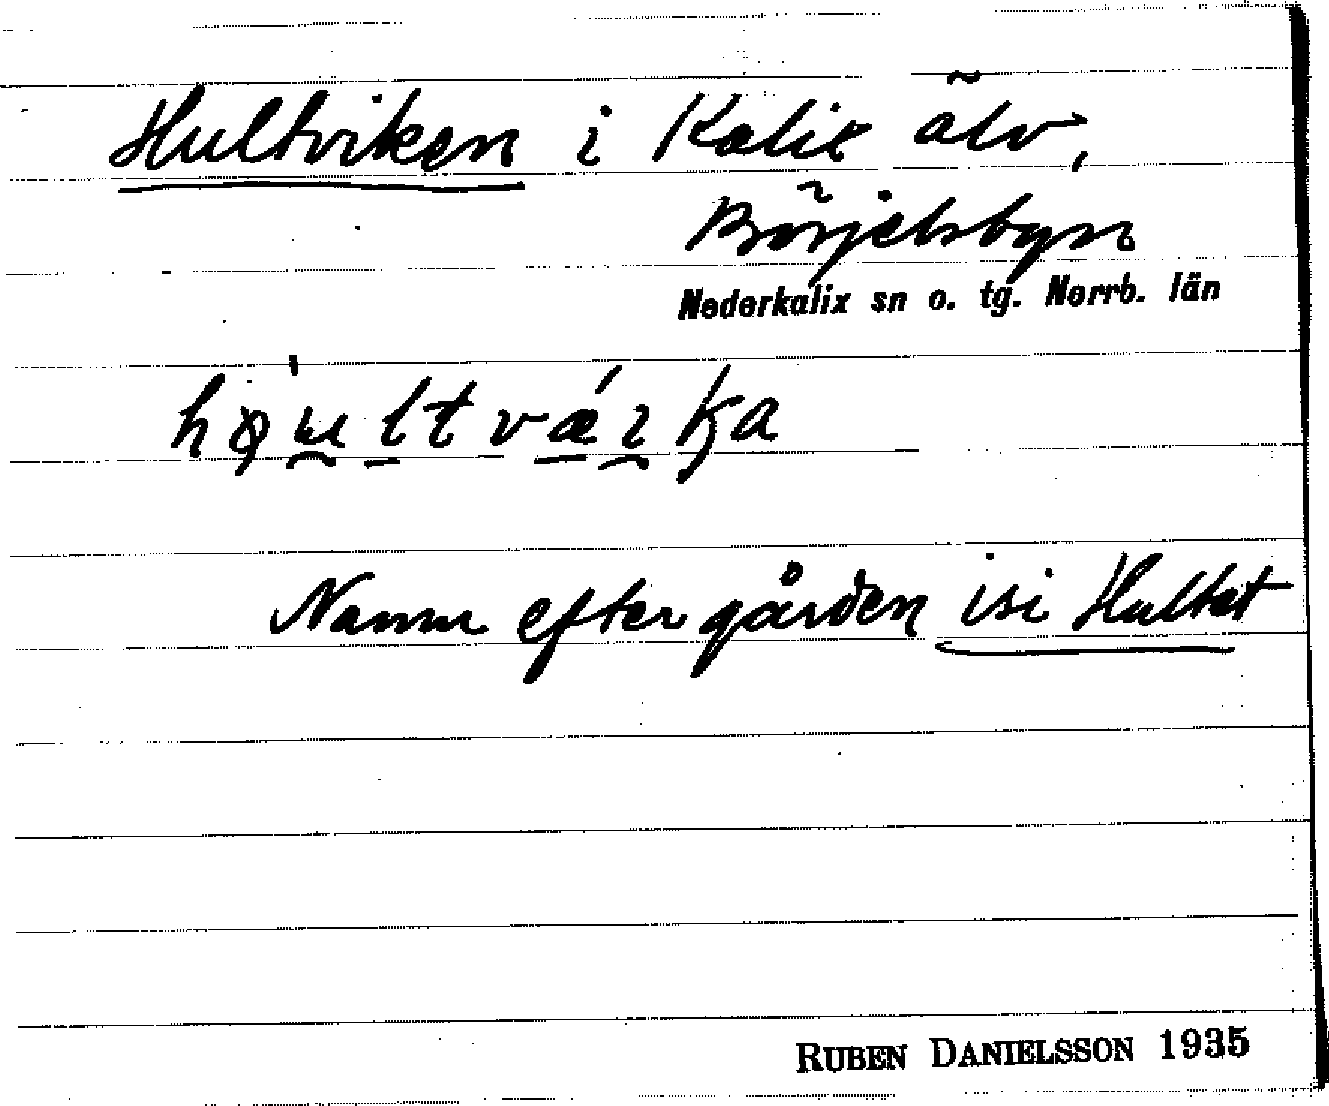 Hultviken i Kalix älv,
Börjelsbyn
Nederkalix sn o. tg. Norrb. län
Namn efter gården isi Hultet
RUBEN DANIELSSON 1935